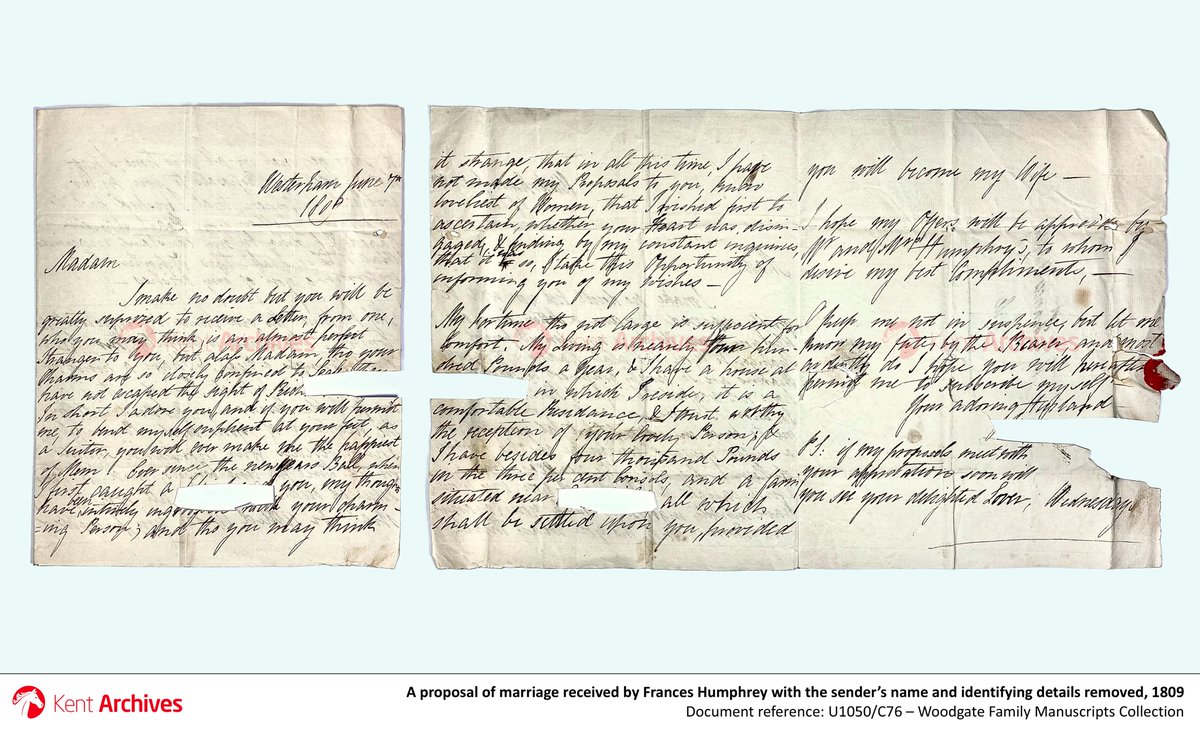 Westerham June 7th
1809
Madam
I make no doubt but you will be
greatly surprozed to receive a Letter from one,
who you may think, an almost perfect
Stranger to you, but alas Madam, tho your
Charms are so closely confined to
have not escaped the sight of
In short I adore you, and if you will permit
me, to bend myself suplient at your feet, as
a Suitor, you will ever make me the happiest
of Men! Ever since the new years Ball, when
I first caught a you, my though
have been intirely with your charm-
=ing Person; and tho you may think
it strange, that in all this time, I have
not made my Proposals to you, know
loveliest of Women, that I wished first to
ascertain, whether your Heart was disin-
gaged, & finding by my constant inquiries,
that it was so, I take this Opportunity of
informing you of my wishes —
My Fortune tho not large is sufficent for
comfort. My Living is hun-
dred Pounds a Year, & I have a house at
in which I reside, it is a
comfortable Residance, & trust worthy
the reception of your lovely Person; &
I have besides four thousand Pounds
in the three per cent Consols, and a farm
situated near all which
shall be settled upon you, provided
you will become my Wife —
I hope my Offers will be approved by
Mr and Mrs Humphry's, to whom I
desire my best Compliments, —
Keep me not in suspence, but let me
know my fate, by the Bearer, and most
ardently do I hope you will hereafter
permit me to subscribe myself
Your adoring Husband
PS: if my proposals meet with
your approbation soon will
you see your delighted Lover, Wednesday
Kent Archives
A proposal of marriage received by Frances Humphrey with the sender's name and identifying details removed, 1809
Document reference: U1050/C76 – Woodgate Family Manuscripts Collection